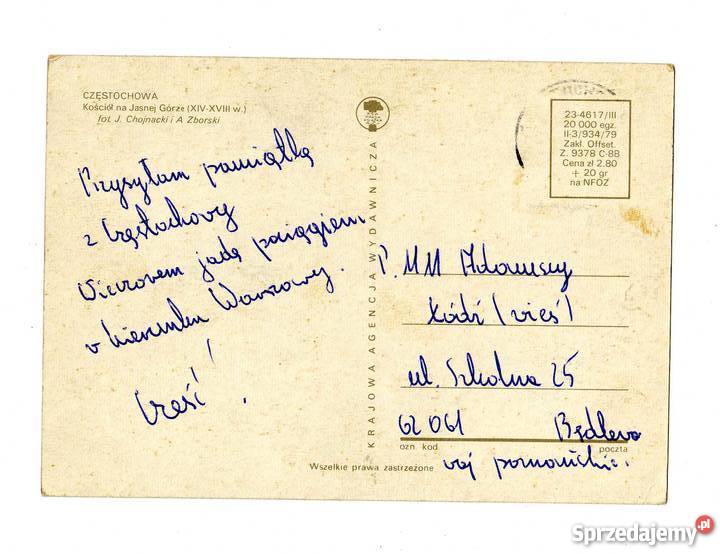 CZĘSTOCHOWA
Kościół na Jasnej Górze (XIV-XVIII w.)
fot. J. Chojnacki i A. Zborski
Przysyłam pamiątkę
z Częstochowy
Wieczorem jadę pociągiem
w kierunku Warszawy.
Cześć!
KRAJOWA AGENCJA WYDAWNICZA
23-4617/III
20 000 egz.
II-3/934/79
Zakł. Offset.
Z. 9378 C-88
Cena zł 2.80
+ 20 gr
na NFOZ
P. MM Adamscy
Łódź (wieś)
ul. Szkolna 25
62 061 Będlewo
ozn. kod poczta
woj poznańskie.
Wszelkie prawa zastrzeżone
Sprzedajemy.pl